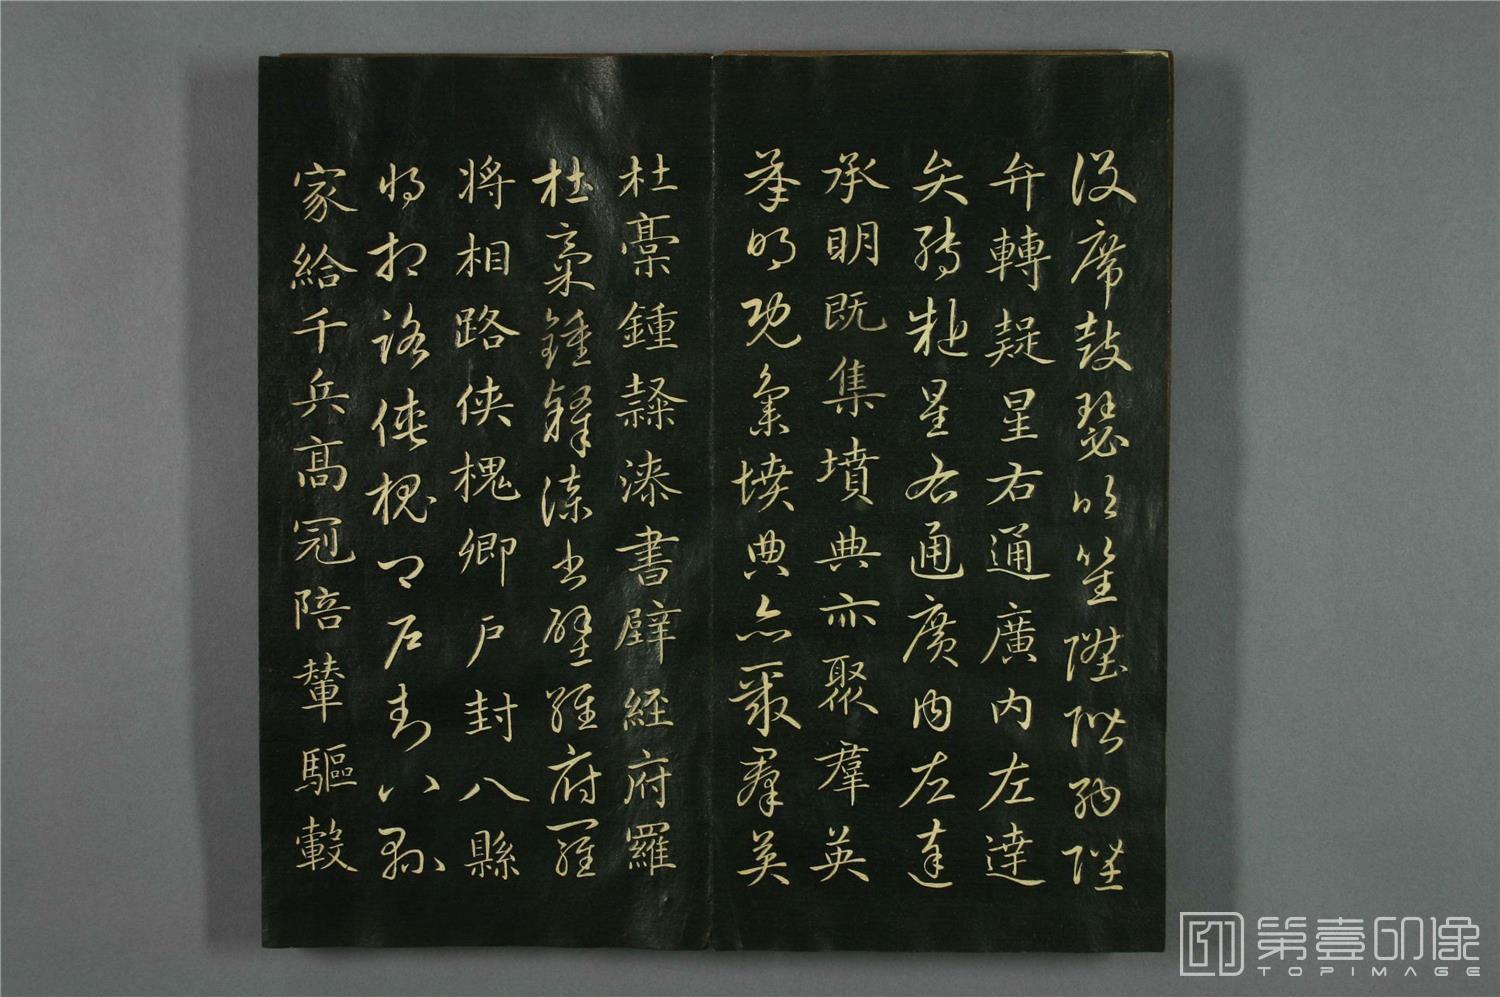 設席鼓瑟吹笙陞階納陛
弁轉疑星右通廣內左達
弁轉疑星右通廣內左達
承明既集墳典亦聚羣英
承明既集墳典亦聚羣英
杜稾鍾隸漆書壁經府羅
杜稾鍾隸漆書壁經府羅
將相路俠槐卿戶封八縣
將相路俠槐卿戶封八縣
家給千兵高冠陪輦驅轂
第壹印像
TOPIMAGE